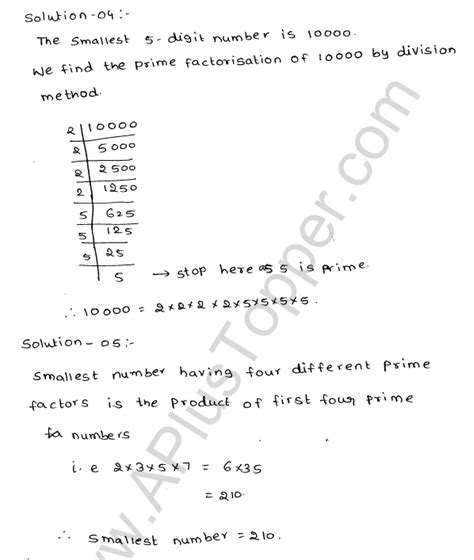 Solution-04:-
The Smallest 5-digit number is 10000.
We find the prime factorisation of 10000 by division
method.
2 | 10000
2 | 5000
2 | 2500
2 | 1250
5 | 625
5 | 125
5 | 25
| 5 → stop here as 5 is prime.
∴ 10000 = 2×2×2×2×5×5×5×5.
Solution-05:-
Smallest number having four different prime
factors is the product of first four prime
fa numbers
i.e 2×3×5×7 = 6×35
= 210.
∴ Smallest number = 210.
www.APlusTopper.com